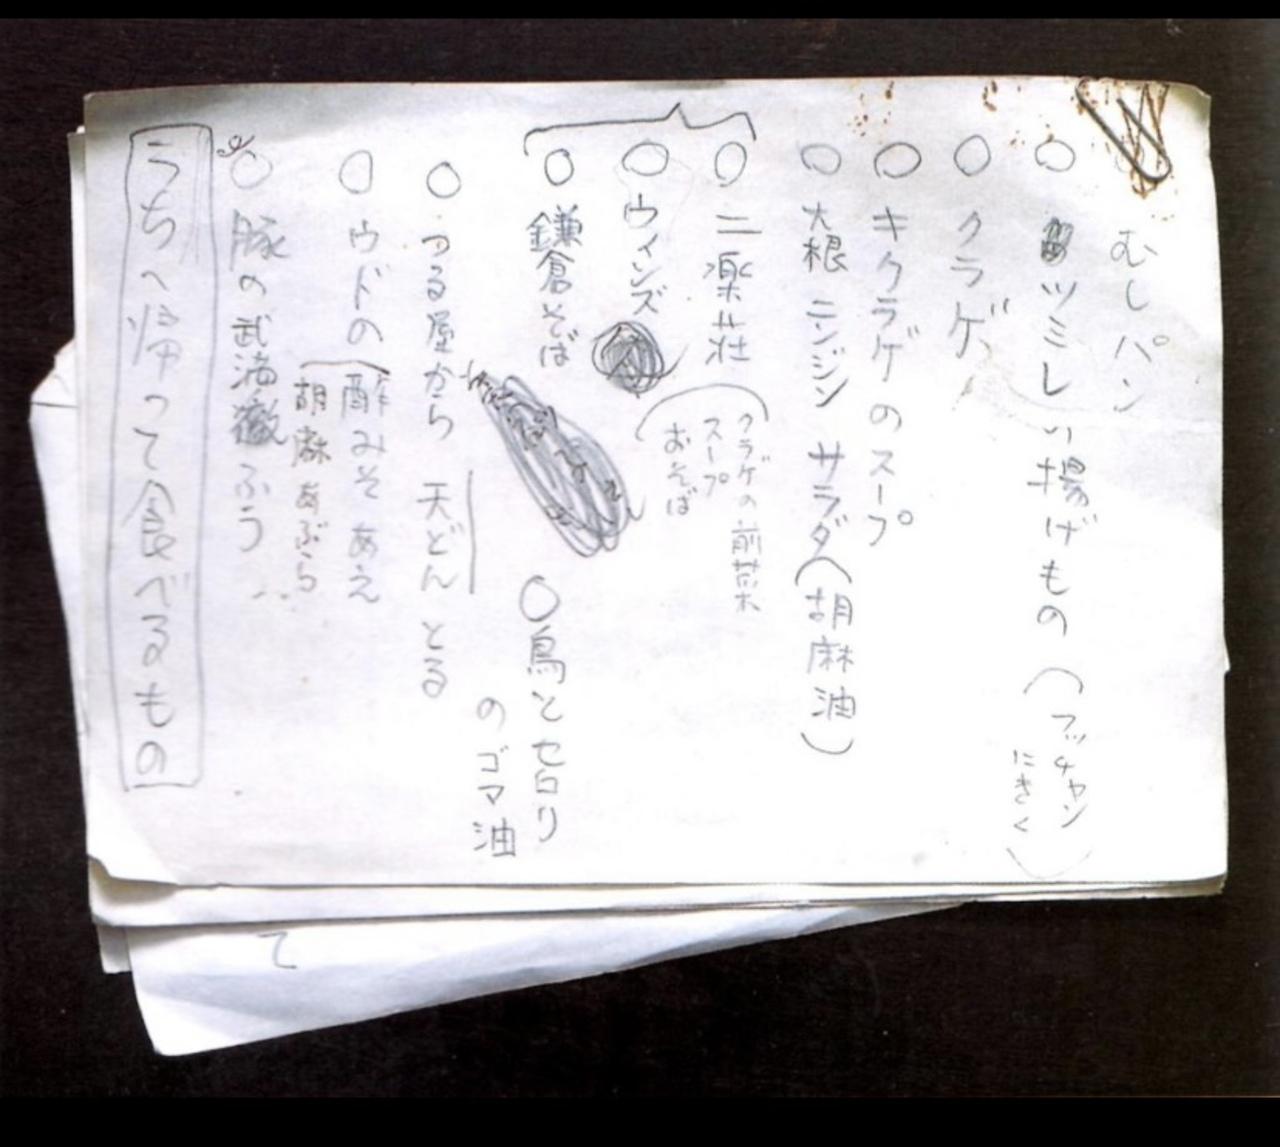 むしパン
○ ツミレの揚げもの（フッチャン
にきく）
○ クラゲ
○ キクラゲのスープ
○ 大根 ニンジン サラダ（胡麻油）
○ 二楽荘
（クラゲの前菜
スープ
おそば
○ ウィンズ
○ 鎌倉そば
○鳥とセロリ
のゴマ油
○ つる屋から 天どん とる
○ ウドの酢みそあえ
胡麻あぶら
○ 豚の武満徹ふう
うちへ帰って食べるもの
て